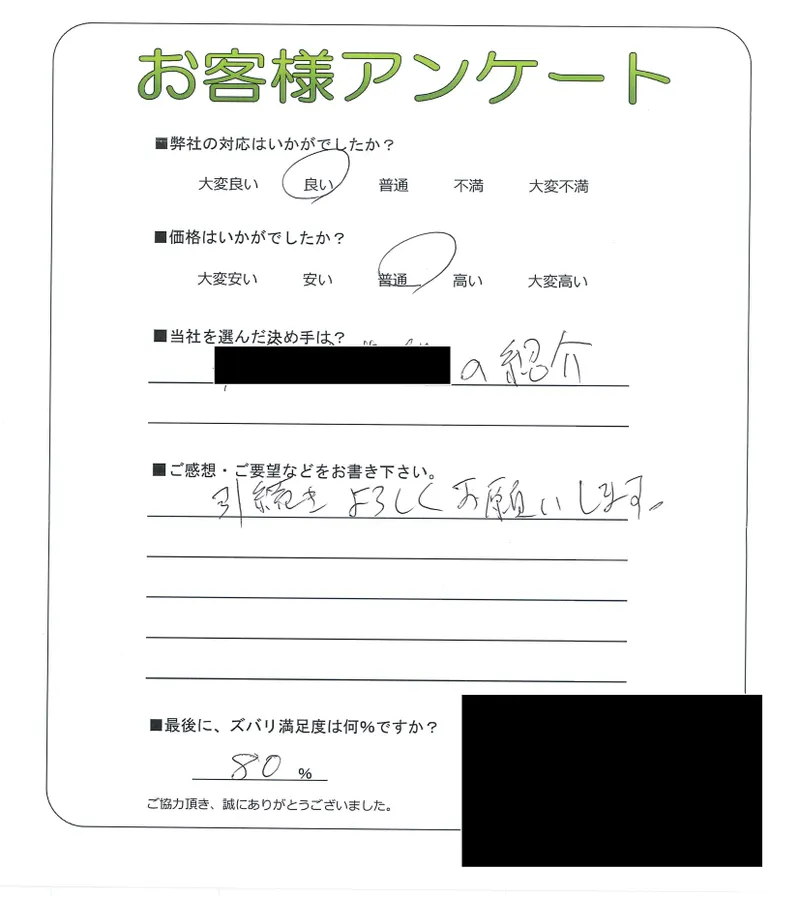 お客様アンケート
■弊社の対応はいかがでしたか？
大変良い 良い 普通 不満 大変不満
■価格はいかがでしたか？
大変安い 安い 普通 高い 大変高い
■当社を選んだ決め手は？
の紹介
■ご感想・ご要望などをお書き下さい。
引続きよろしくお願いします。
■最後に、ズバリ満足度は何%ですか？
80 %
ご協力頂き、誠にありがとうございました。